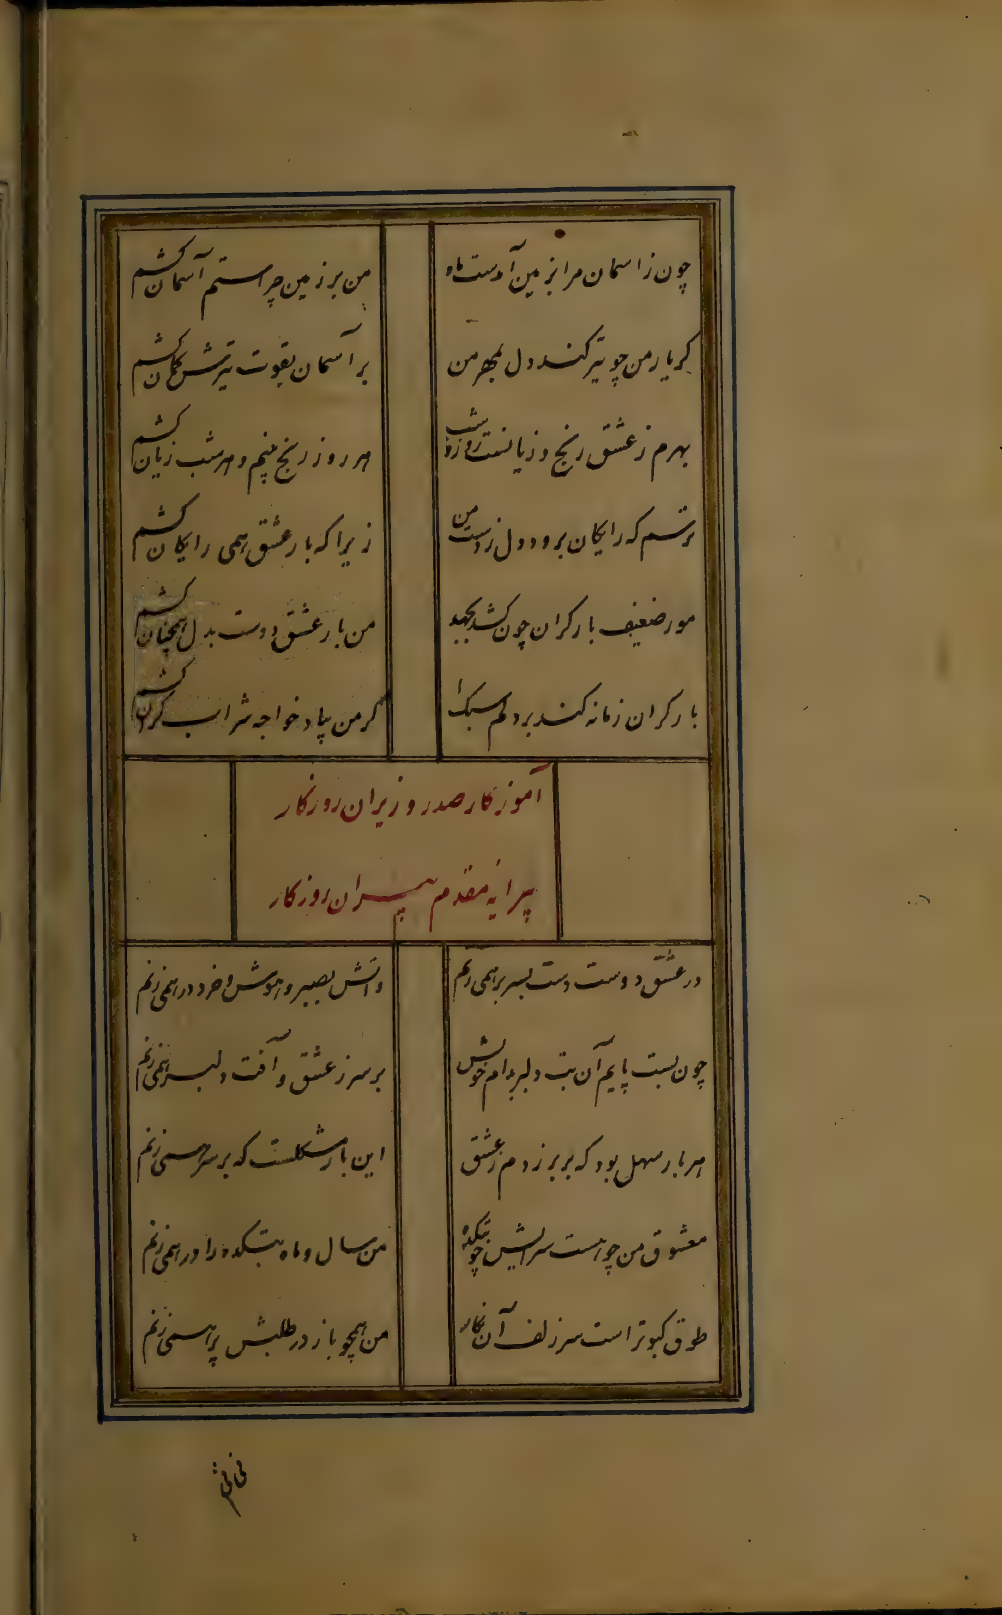 چون ز آسمان مرا بزمین آمدست ماه من بر زمین چرا ستم آسمان کشم
کر یار من چو تیر کند دل بمهر من بر آسمان بقوت تیرش کمان کشم
بهرم ز عشق رنج و زیانست روز و شب هر روز رنج بینم و هر شب زیان کشم
ترسم که رایکان برود دل ز دست من زیرا که بار عشق همی رایکان کشم
مور ضعیف بار کران چون کشد بجهد من بار عشق دوست بدل همچنان کشم
بار کران زمانه کند بر دلم سبک کر من بیاد خواجه شراب کران کشم
آموزکار صدر وزیران روزکار
پیرایه مقدم پیران روزکار
در عشق دوست دست بسر بر همی زنم واتش بصبر و هوش و خرد در همی زنم
چون بست پایم آن بت دلبر بدام خویش بر سر ز عشق و آفت دلبر همی زنم
هر بار سهل بود که بر بر زدم ز عشق این بار مشکلست که بر سر همی زنم
معشوق من چو هست سرایش چو بتکده من سال و ماه بتکده را در همی زنم
طوق کبوتر است سر زلف آن نکار من همچو باز در طلبش پر همی زنم